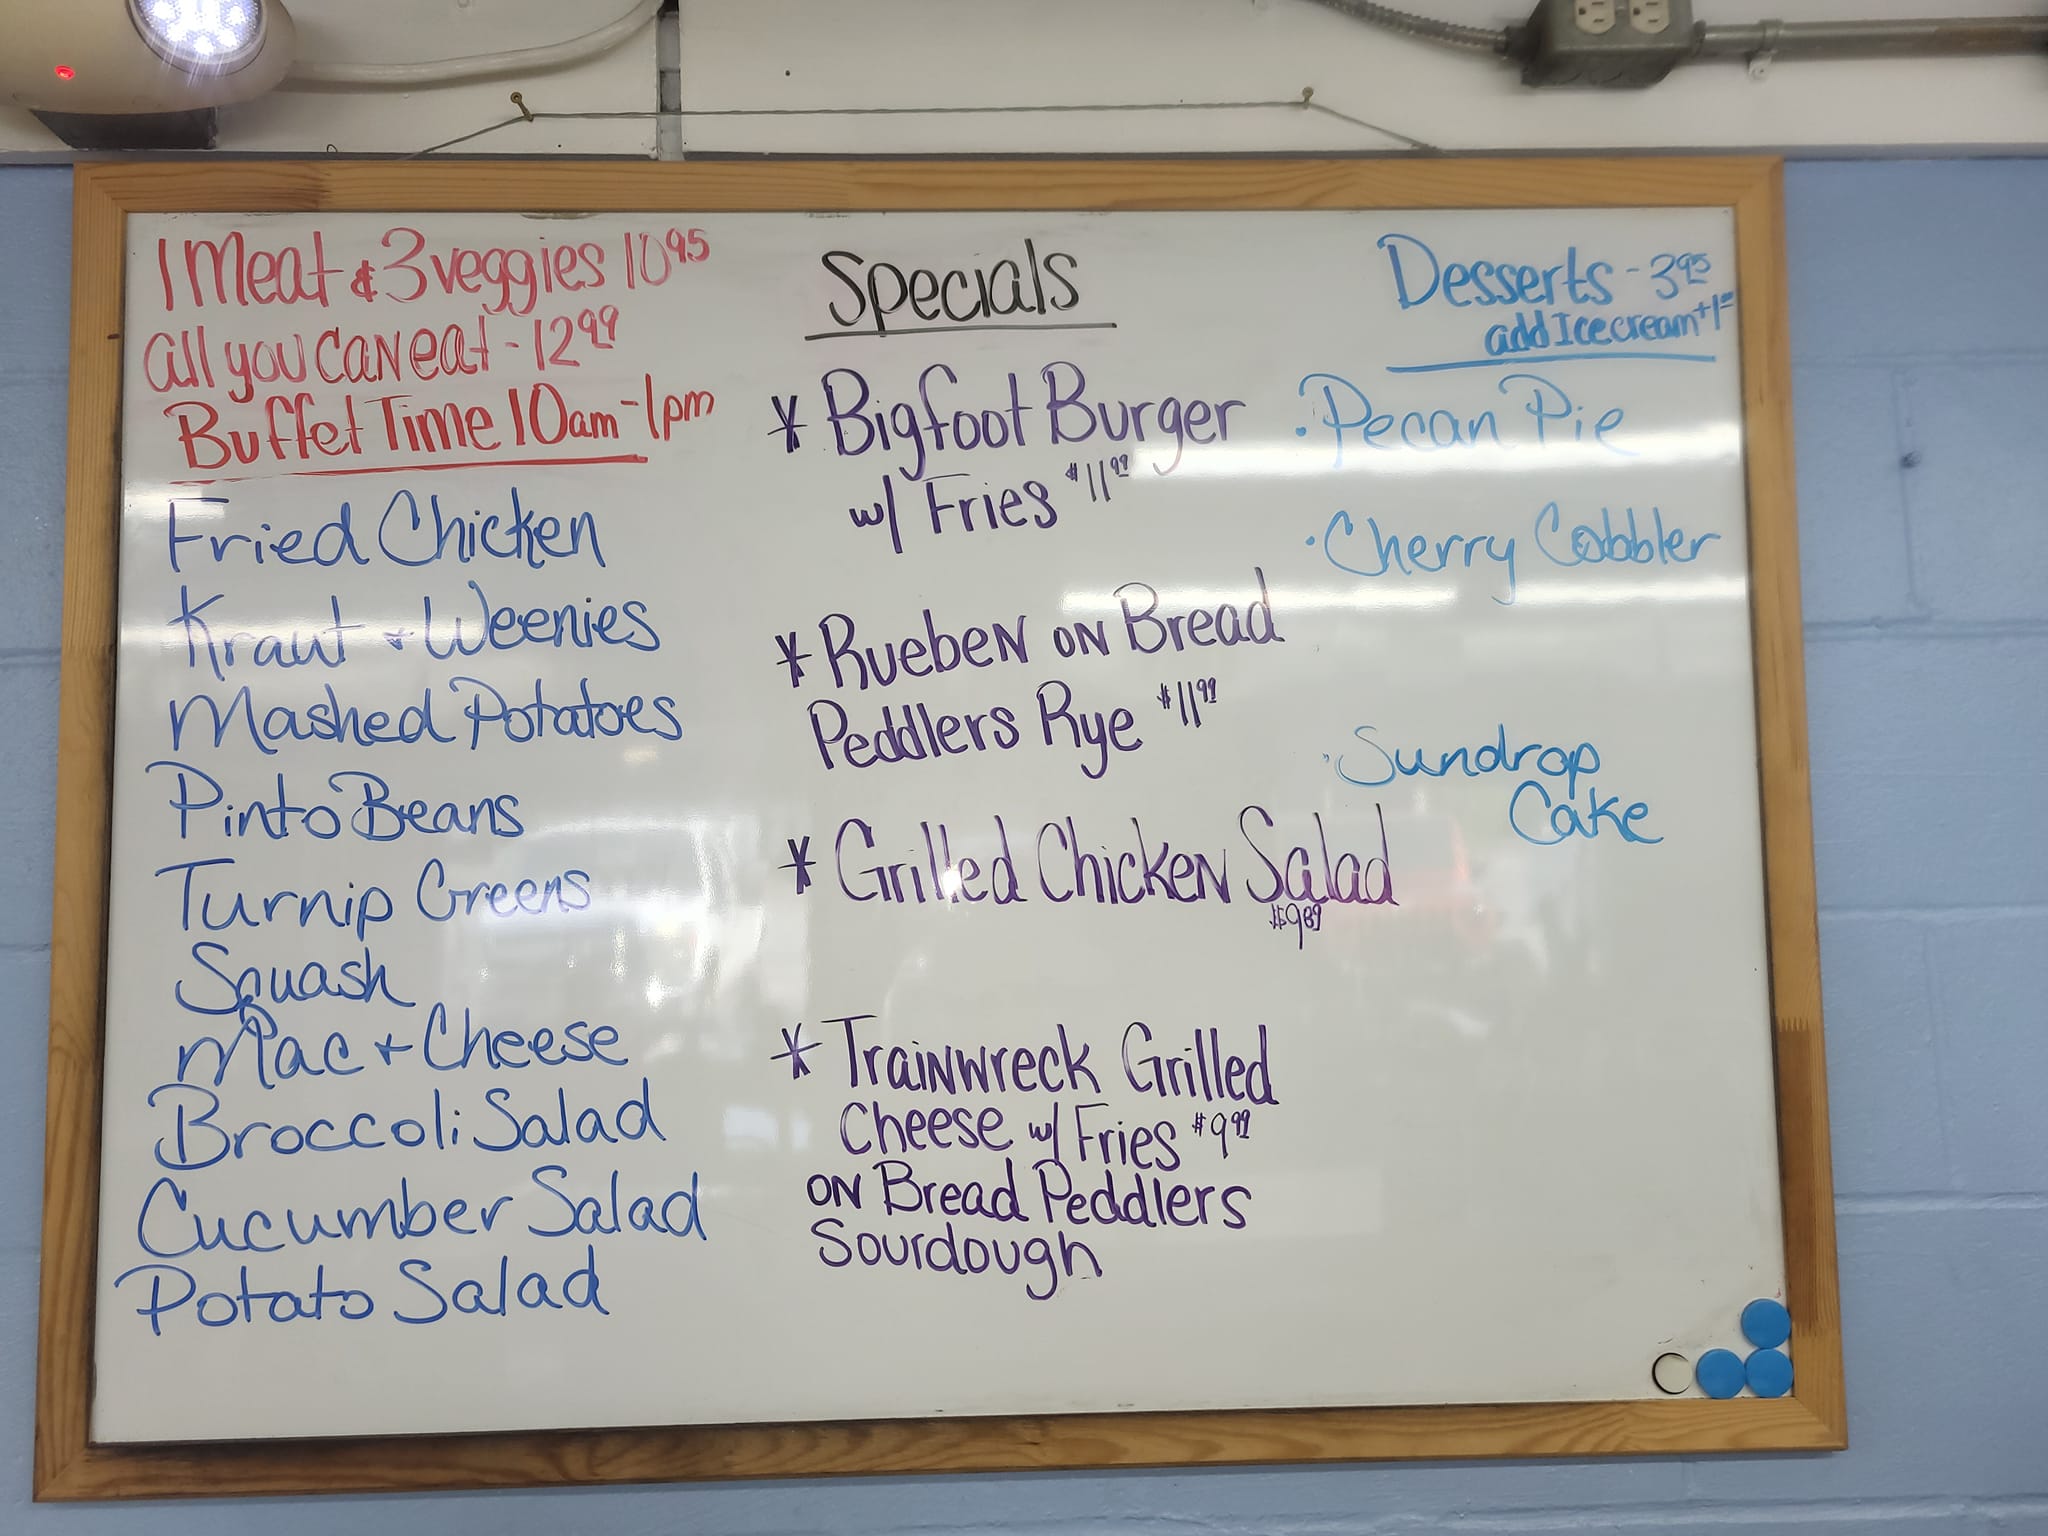 1 Meat & 3 veggies 10 95
all you can eat - 12 99
Buffet Time 10am-1pm
Fried Chicken
Kraut + Weenies
Mashed Potatoes
Pinto Beans
Turnip Greens
Squash
Mac + Cheese
Broccoli Salad
Cucumber Salad
Potato Salad
Specials
* Bigfoot Burger
w/ Fries $11 99
* Rueben on Bread
Peddlers Rye $11 99
* Grilled Chicken Salad
$9 89
* Trainwreck Grilled
Cheese w/ Fries $9 99
on Bread Peddlers
Sourdough
Desserts - 3 95
add Icecream +1 00
· Pecan Pie
· Cherry Cobbler
· Sundrop
Cake